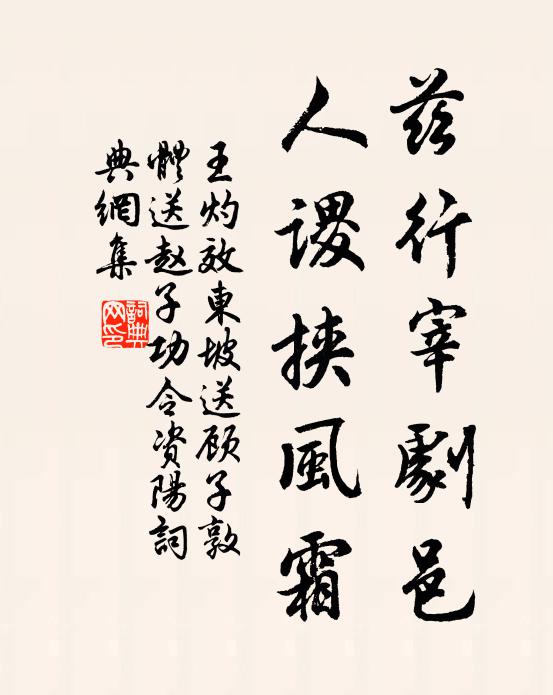 茲行宰劇邑
人谡挟風霜
王灼效東坡送顾子敦
體送赵子功令资陽詞
典網集
詞典
网印